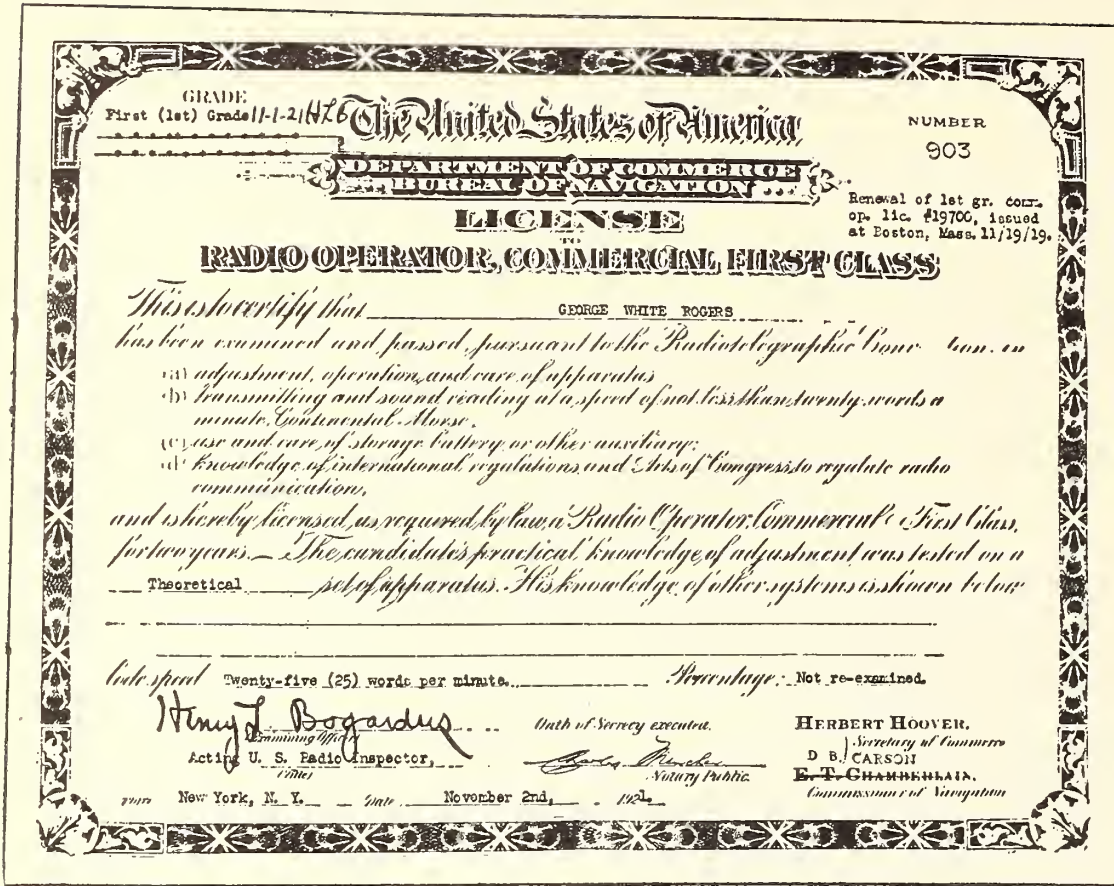 GRADE
First (1st) Grade 11-1-21 HLB
The United States of America
NUMBER
903
DEPARTMENT OF COMMERCE
BUREAU OF NAVIGATION
Renewal of 1st gr. com.
op. lic. #19700, issued
at Boston, Mass. 11/19/19.
LICENSE
TO
RADIO OPERATOR, COMMERCIAL FIRST CLASS
This is to certify that GEORGE WHITE ROGERS
has been examined and passed, pursuant to the Radiotelegraphic in
(a) adjustment, operation, and care of apparatus
(b) transmitting and sound reading at a speed of not less than twenty words a
minute, Continental Morse.
(c) use and care of storage battery or other auxiliary;
(d) knowledge of international regulations, and Acts of Congress to regulate radio
communication,
and is hereby licensed, as required by law, a Radio Operator, Commercial First Class,
for two years. — The candidate's practical knowledge of adjustment was tested on a
Theoretical set of apparatus. His knowledge of other systems is shown below
Code speed Twenty-five (25) words per minute. Percentage: Not re-examined.
Henry L. Bogardus
Examining Officer
Oath of Secrecy executed.
HERBERT HOOVER.
Secretary of Commerce
Acting U. S. Radio Inspector,
(Title)
Charles
Notary Public.
D B. CARSON
E. T. CHAMBERLAIN.
Commissioner of Navigation
New York, N. Y. Date November 2nd, 1921.